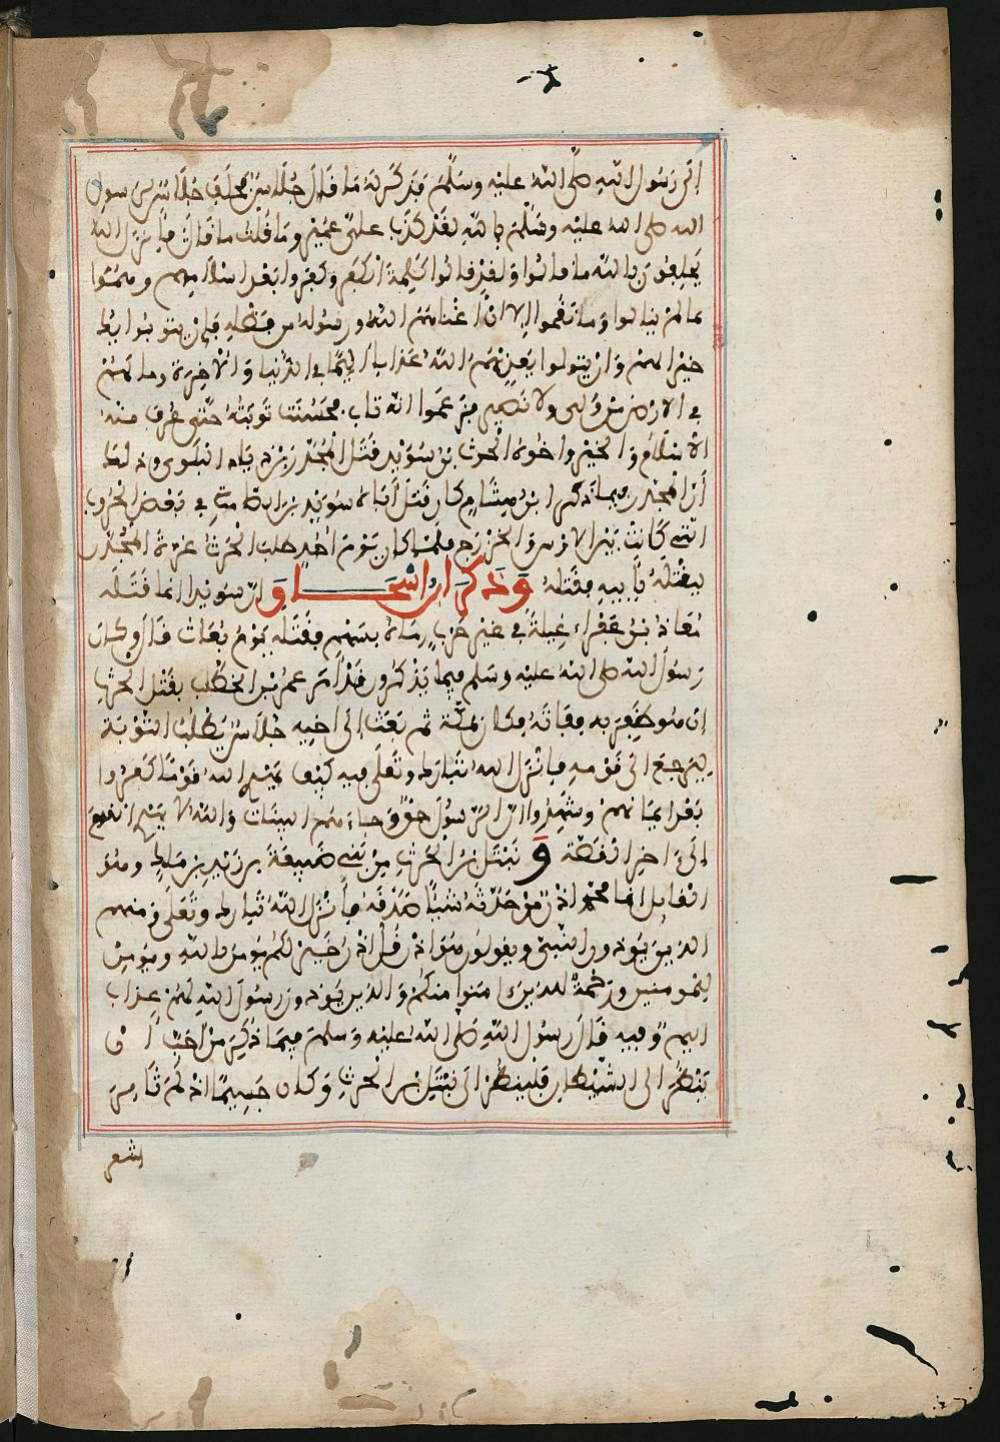 الى رسول الله صلى الله عليه وسلم فذكر له ما قال جلاس فحلف جلاس لرسول
الله صلى الله عليه وسلم بالله لقد كذب على عمير وما قلت ما قال فأنزل الله
يحلفون بالله ما قالوا ولقد قالوا كلمة الكفر وكفروا بعد اسلامهم وهموا
بما لم ينالوا وما نقموا إلا ان اغناهم الله ورسوله من فضله فإن يتوبوا يك
خيرا لهم وان يتولوا يعذبهم الله عذابا اليما في الدنيا والاخرة وما لهم
في الارض من ولي ولا نصير فزعموا انه تاب فحسنت توبته حتى عرف منه
الاسلام والخير واخوه الحرث بن سويد قتل المجذر بن زياد البلوي وذلك
أن المجذر فيما ذكر ابن هشام كان قتل أباه سويد بن الصامت في بعض الحروب
التي كانت بين الاوس والخزرج فلما كان يوم احد طلب الحرث غرة المجذر
ليقتله بأبيه فقتله وذكر ابن اسحاق ان سويدا انما قتله
معاذ بن عفراء غيلة في غير حرب رماه بسهم فقتله يوم بعاث قال وكان
رسول الله صلى الله عليه وسلم فيما يذكرون قد أمر عمر بن الخطاب بقتل الحرث
ان هو ظفر به ففاته فكان بمكة ثم بعث إلى اخيه جلاس يطلب التوبة
ليرجع الى قومه فانزل الله تبارك وتعلى فيه كيف يهدي الله قوما كفروا
بعد ايمانهم وشهدوا ان الرسول حق وجاءهم البينات والله لا يهدي القوم
إلى ءاخر القصة و نبتل بن الحرث من بني ضبيعة بن زيد بن ملك وهو
القايل انما محمد اذن من حدثه شيئا صدقه فأنزل الله تبارك وتعلى ومنهم
الذين يوذون النبيء ويقولون هو اذن قل اذن خير لكم يومن بالله ويومن
للمومنين ورحمة للذين ءامنوا منكم والذين يوذون رسول الله لهم عذاب
اليم وفيه قال رسول الله صلى الله عليه وسلم فيما ذكر من أحب أن
ينظر الى الشيطان فلينظر الى نبتل بن الحرث وكان جسيما اذلم ثاير
الشعر